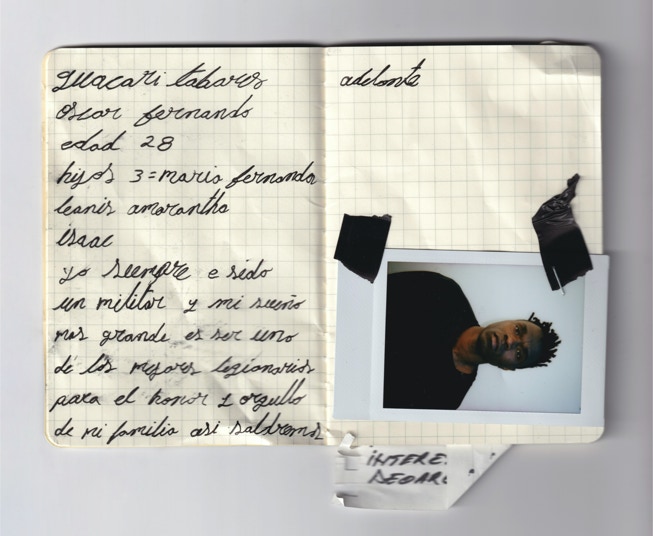 guacari tabares
oscar fernando
edad 28
hijos 3 = mario fernando
leanis amarantha
isaac
yo siempre e sido
un militar y mi sueño
mas grande es ser uno
de los mejores legionarios
para el honor y orgullo
de mi familia asi saldremos
adelante
INTERE
DEOAR